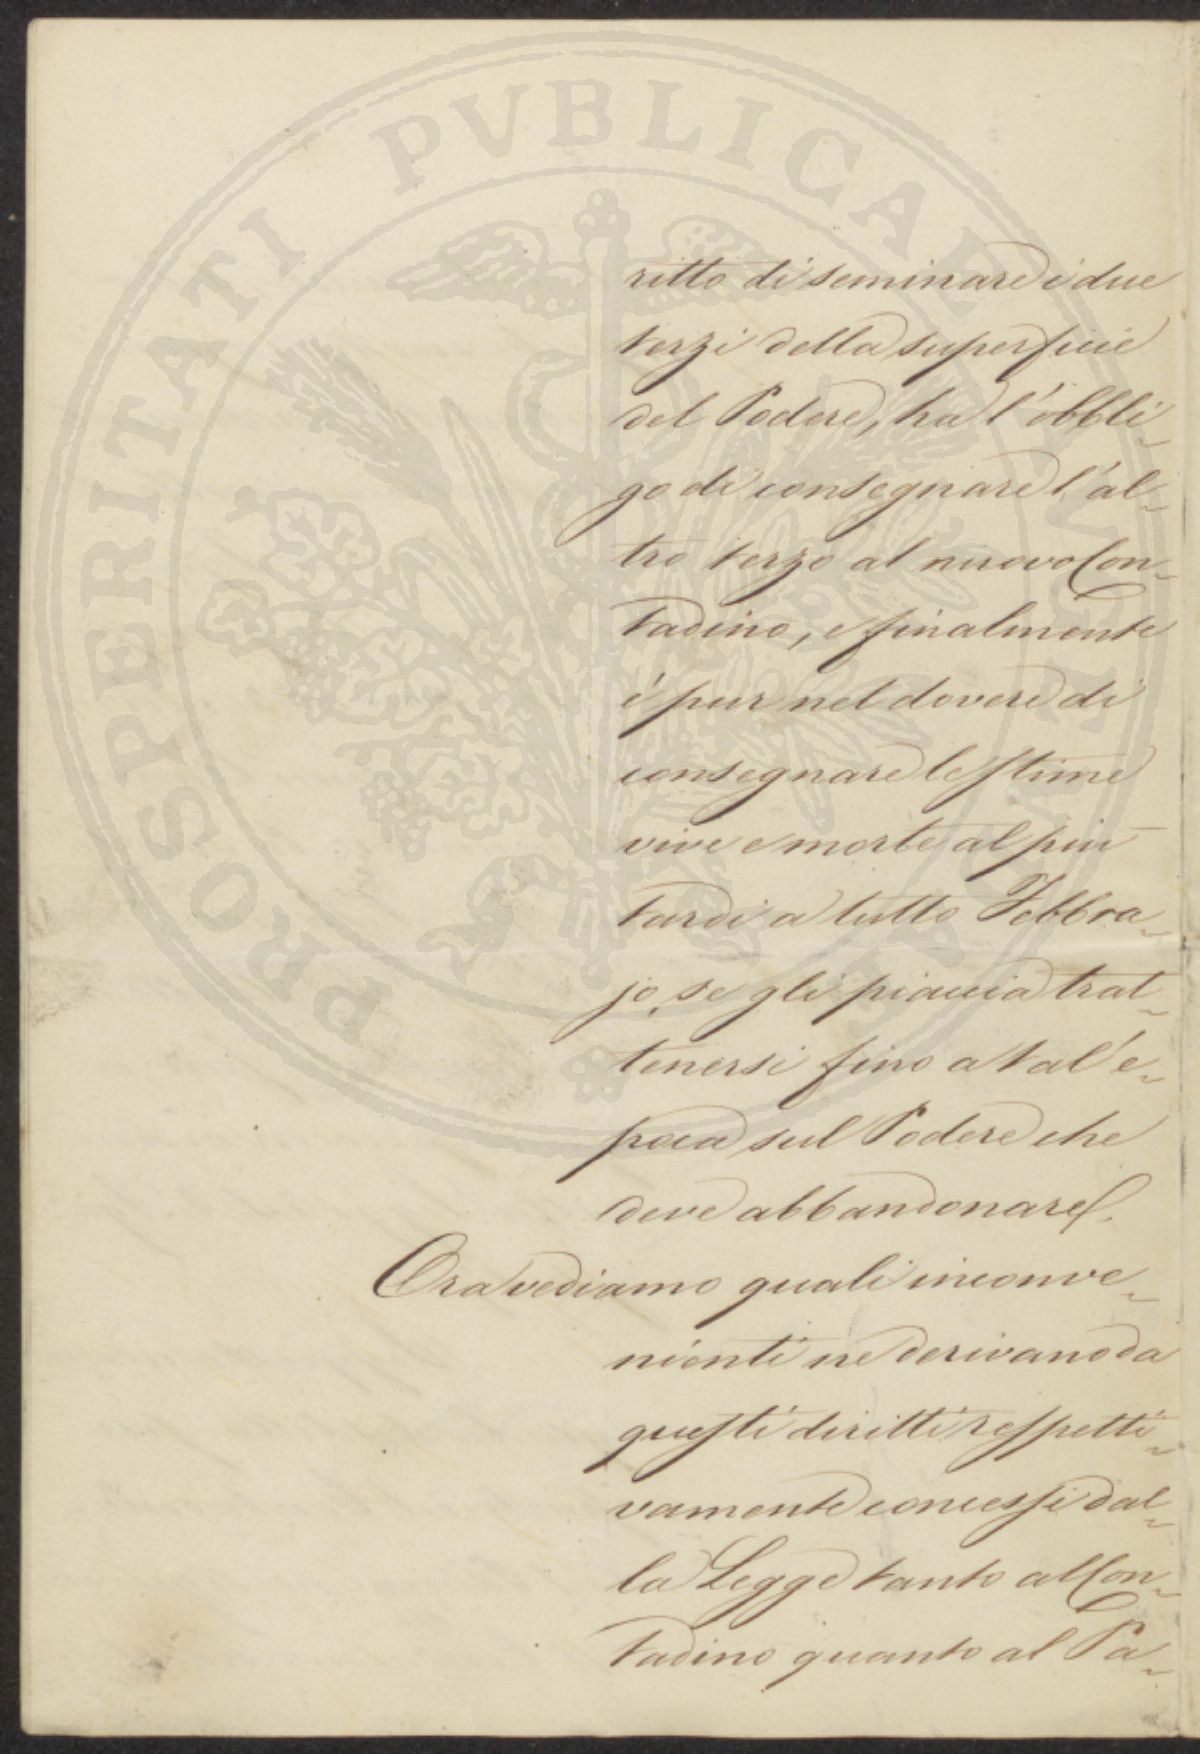 PROSPERITATI PVBLICAE AVGENDAE
ritto di seminare i due
terzi della superficie
del Podere, ha l'obbli-
go di consegnare l'al-
tro terzo al nuovo Con-
tadino, e finalmente
è pur nel dovere di
consegnare le stime
vive e morte al più
tardi a tutto Febbra-
jo, se gli piaccia trat-
tenersi fino a tal'e-
poca sul Podere che
deve abbandonare.
Ora vediamo quali inconve-
nienti ne derivano da
questi diritti respetti-
vamente concessi dal-
la Legge tanto al Con-
tadino quanto al Pa-